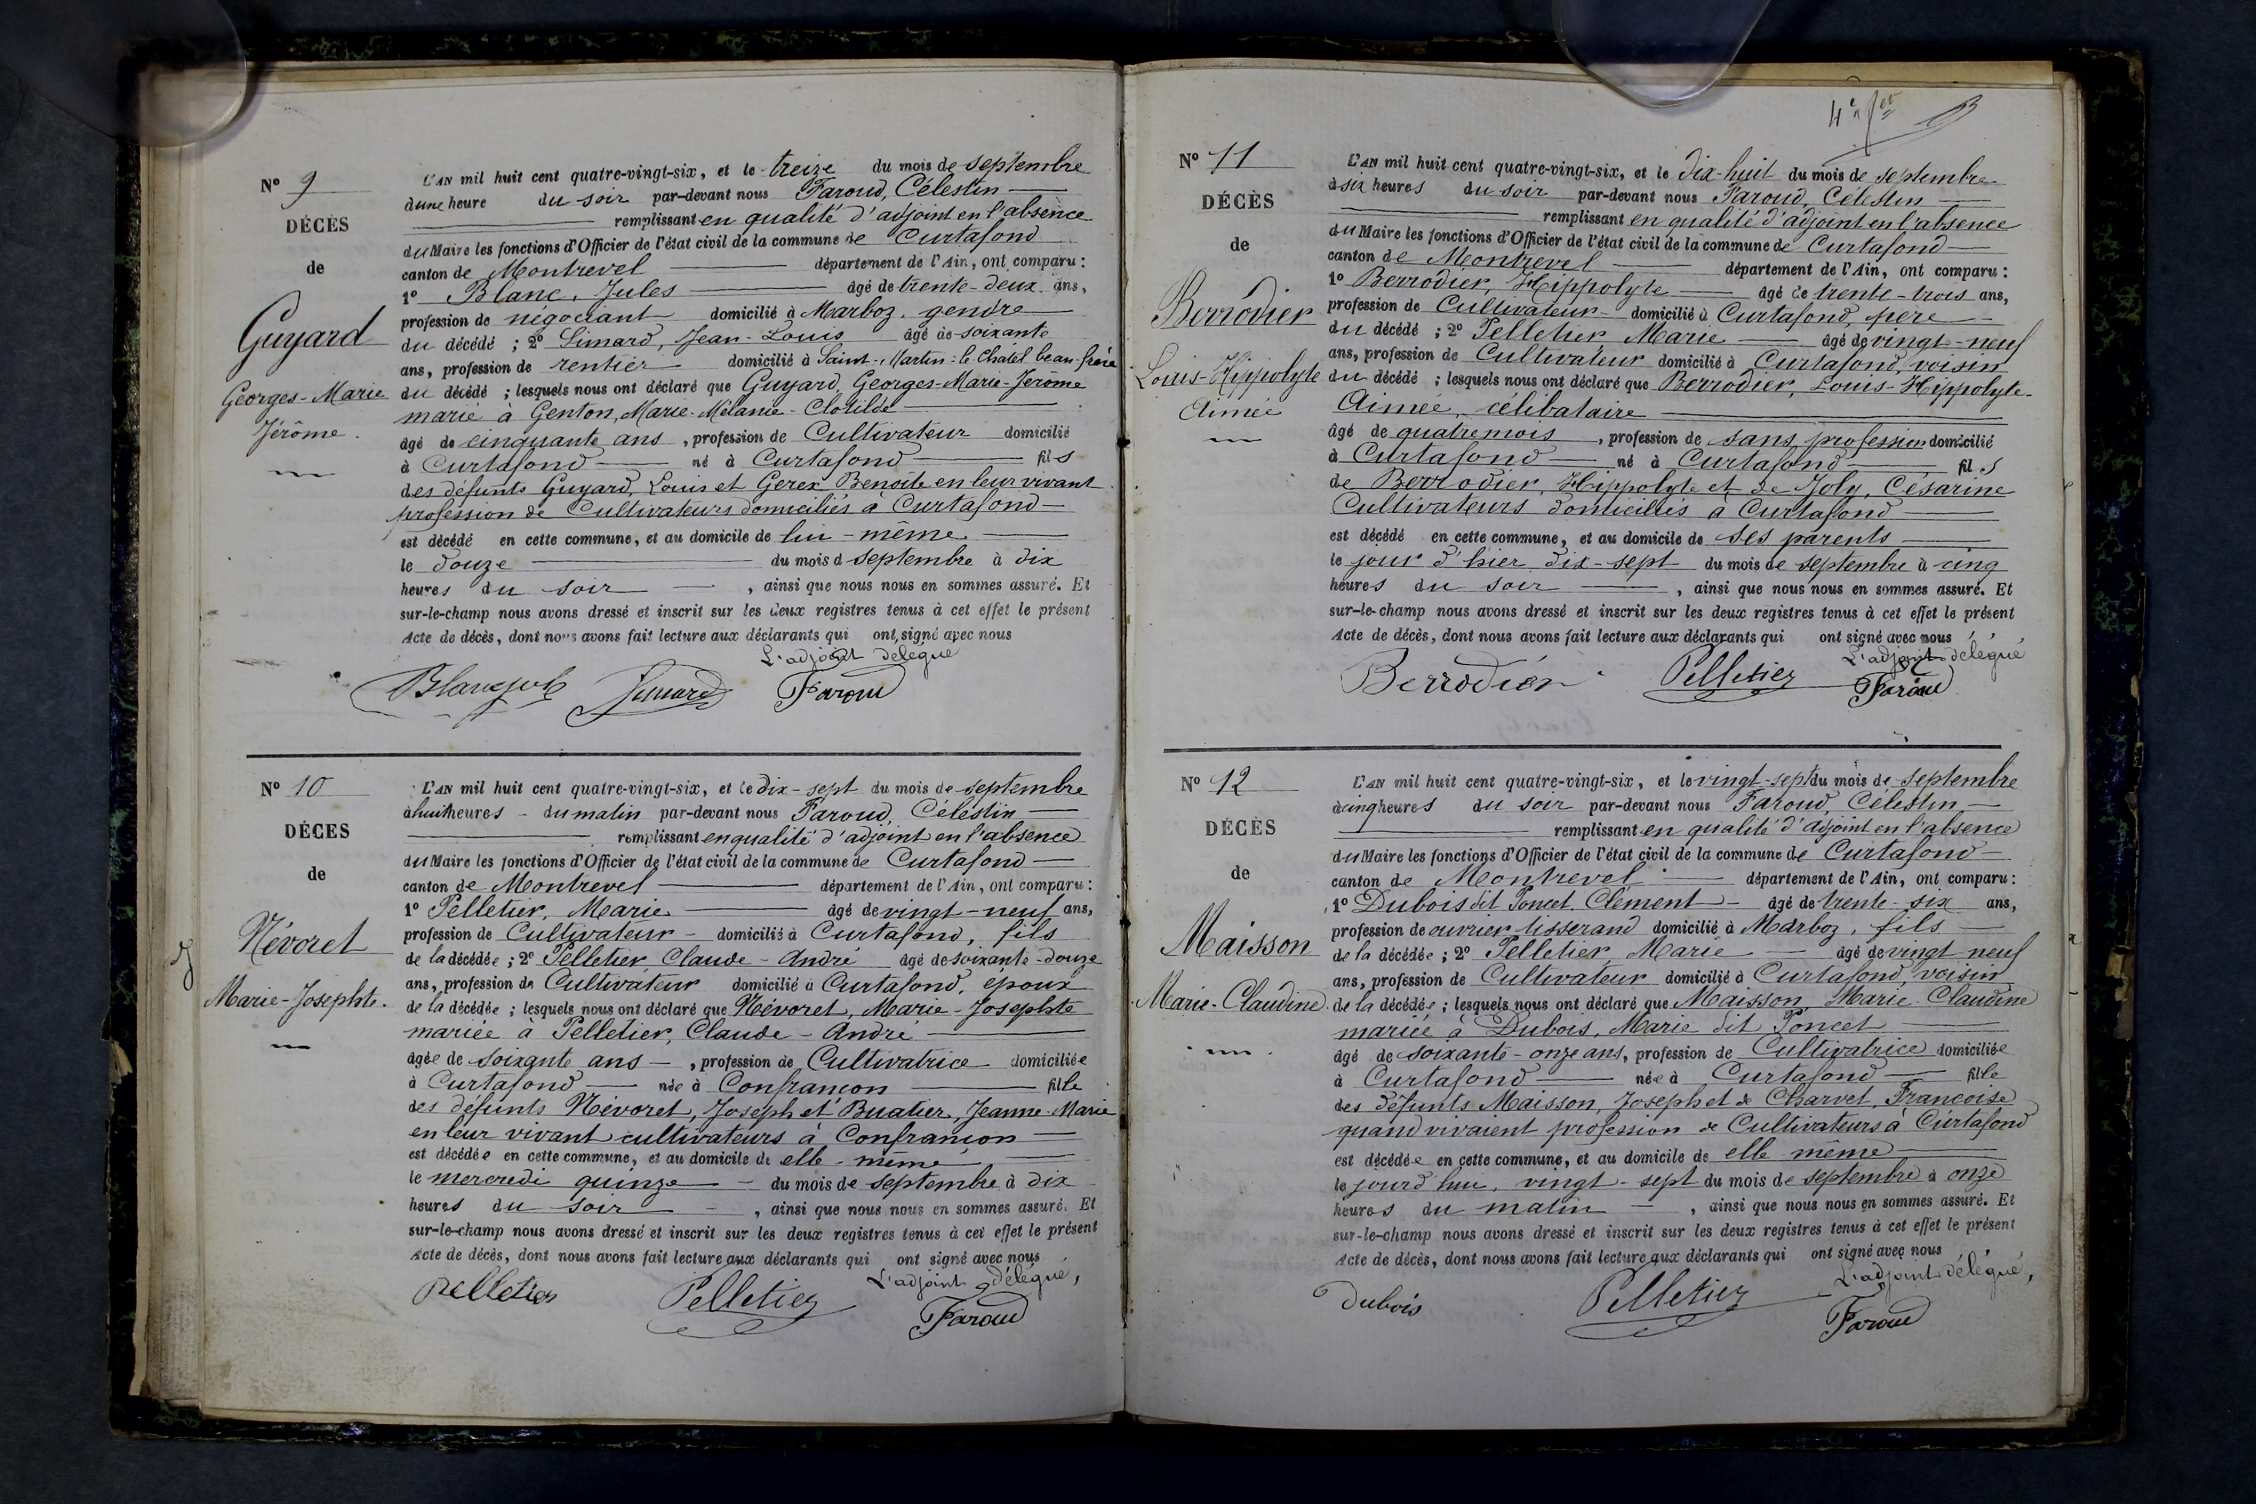 N° 9
DÉCÈS
de
Guyard
Georges-Marie
Jérôme.
L'AN mil huit cent quatre-vingt-six, et le treize du mois de septembre
à une heure du soir par-devant nous Faroud, Célestin
remplissant en qualité d'adjoint en l'absence
du Maire les fonctions d'Officier de l'état civil de la commune de Curtafond
canton de Montrevel département de l'Ain, ont comparu :
1° Blanc, Jules âgé de trente-deux ans,
profession de négociant domicilié à Marboz, gendre
du décédé ; 2° Simard, Jean-Louis âgé de soixante
ans, profession de rentier domicilié à Saint-Martin-le-Chatel beau-frère
du décédé ; lesquels nous ont déclaré que Guyard, Georges-Marie-Jérôme
marié à Genton, Marie-Mélanie-Clotilde
âgé de cinquante ans, profession de Cultivateur domicilié
à Curtafond né à Curtafond fils
des défunts Guyard, Louis et Gerex Benoîte en leur vivant
profession de Cultivateurs domiciliés à Curtafond
est décédé en cette commune, et au domicile de lui-même
le douze du mois d septembre à dix
heures du soir, ainsi que nous nous en sommes assuré. Et
sur-le-champ nous avons dressé et inscrit sur les deux registres tenus à cet effet le présent
Acte de décès, dont nous avons fait lecture aux déclarants qui ont signé avec nous
L'adjoint délégué
Blanc Jules Simard Faroud
N° 10
DÉCES
de
Névoret
Marie-Josephte.
L'AN mil huit cent quatre-vingt-six, et le dix-sept du mois de septembre
à huit heures du matin par-devant nous Faroud, Célestin
remplissant en qualité d'adjoint en l'absence
du Maire les fonctions d'Officier de l'état civil de la commune de Curtafond
canton de Montrevel département de l'Ain, ont comparu :
1° Pelletier, Marie âgé de vingt-neuf ans,
profession de Cultivateur domicilié à Curtafond, fils
de la décédée ; 2° Pelletier Claude-André âgé de soixante-douze
ans, profession de Cultivateur domicilié à Curtafond, époux
de la décédée ; lesquels nous ont déclaré que Névoret, Marie-Josephte
mariée à Pelletier, Claude-André
âgée de soixante ans, profession de Cultivatrice domiciliée
à Curtafond née à Confrançon fille
des défunts Névoret, Joseph et Buatier, Jeanne-Marie
en leur vivant cultivateurs à Confrançon
est décédée en cette commune, et au domicile de elle-même
le mercredi quinze du mois de septembre à dix
heures du soir, ainsi que nous nous en sommes assuré. Et
sur-le-champ nous avons dressé et inscrit sur les deux registres tenus à cet effet le présent
Acte de décès, dont nous avons fait lecture aux déclarants qui ont signé avec nous
L'adjoint délégué,
Pelletier Pelletier Faroud
N° 11
DÉCÈS
de
Berrodier
Louis-Hippolyte
Aimée
L'AN mil huit cent quatre-vingt-six, et le dix-huit du mois de septembre
à six heures du soir par-devant nous Faroud, Célestin
remplissant en qualité d'adjoint en l'absence
du Maire les fonctions d'Officier de l'état civil de la commune de Curtafond
canton de Montrevel département de l'Ain, ont comparu :
1° Berrodier, Hippolyte âgé de trente-trois ans,
profession de Cultivateur domicilié à Curtafond, père
du décédé ; 2° Pelletier, Marie âgé de vingt-neuf
ans, profession de Cultivateur domicilié à Curtafond, voisin
du décédé ; lesquels nous ont déclaré que Berrodier, Louis-Hippolyte-
Aimée, célibataire
âgé de quatre mois, profession de sans profession domicilié
à Curtafond né à Curtafond fils
de Berrodier, Hippolyte et de Joly, Césarine
Cultivateurs domiciliés à Curtafond
est décédé en cette commune, et au domicile de ses parents
le jour d'hier dix-sept du mois de septembre à cinq
heures du soir, ainsi que nous nous en sommes assuré. Et
sur-le-champ nous avons dressé et inscrit sur les deux registres tenus à cet effet le présent
Acte de décès, dont nous avons fait lecture aux déclarants qui ont signé avec nous
L'adjoint délégué
Berrodier Pelletier Faroud
N° 12
DÉCÈS
de
Maisson
Marie-Claudine
L'AN mil huit cent quatre-vingt-six, et le vingt-sept du mois de septembre
à cinq heures du soir par-devant nous Faroud, Célestin
remplissant en qualité d'adjoint en l'absence
du Maire les fonctions d'Officier de l'état civil de la commune de Curtafond
canton de Montrevel département de l'Ain, ont comparu :
1° Dubois dit Poncet Clément âgé de trente-six ans,
profession de ouvrier tisserand domicilié à Marboz, fils
de la décédée ; 2° Pelletier, Marie âgé de vingt neuf
ans, profession de Cultivateur domicilié à Curtafond, voisin
de la décédée ; lesquels nous ont déclaré que Maisson, Marie-Claudine
mariée à Dubois, Marie dit Poncet
âgé de soixante-onze ans, profession de Cultivatrice domiciliée
à Curtafond née à Curtafond fille
des défunts Maisson, Joseph et de Charvet, Françoise
quand vivaient profession de Cultivateurs à Curtafond
est décédée en cette commune, et au domicile de elle même
le jourd'hui, vingt-sept du mois de septembre à onze
heures du matin, ainsi que nous nous en sommes assuré. Et
sur-le-champ nous avons dressé et inscrit sur les deux registres tenus à cet effet le présent
Acte de décès, dont nous avons fait lecture aux déclarants qui ont signé avec nous
L'adjoint délégué,
Dubois Pelletier Faroud